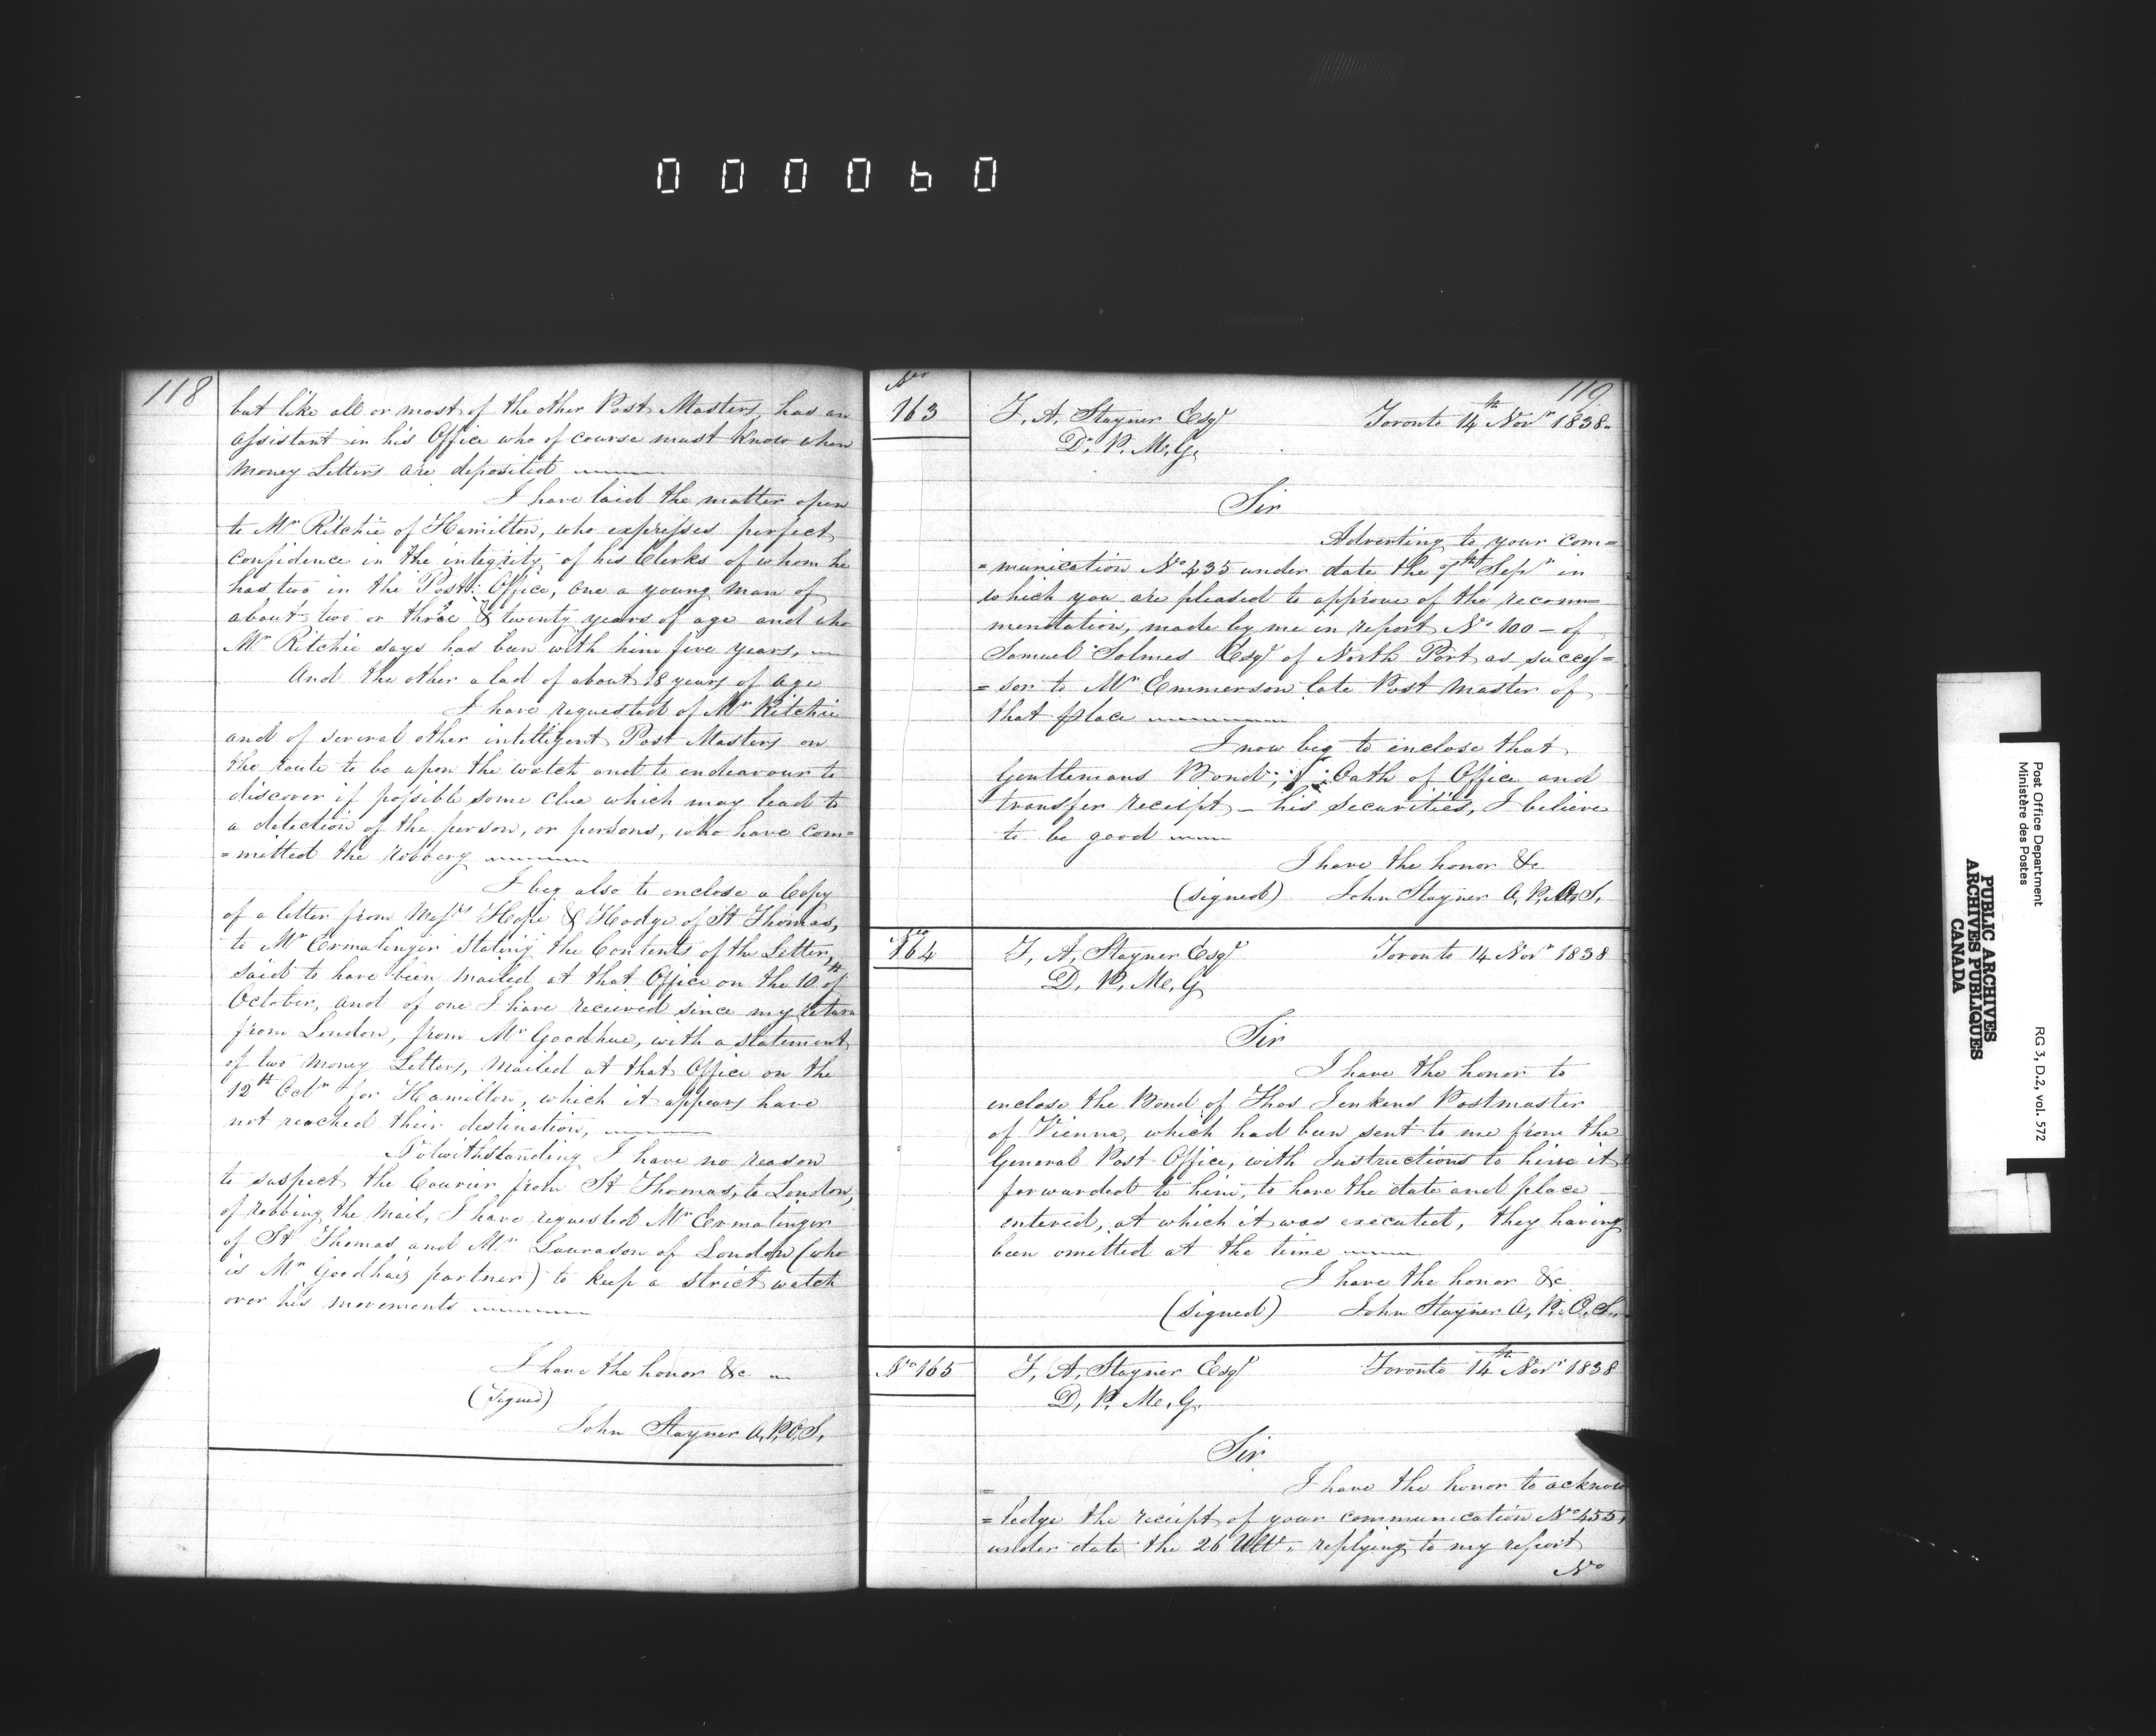 000060
118
but like all or most of the other Post Masters, has an
assistant in his Office who of course must know when
money Letters are deposited
I have laid the matter open
to Mr Ritchie of Hamilton, who expresses perfect
confidence in the integrity of his Clerks of whom he
has two in the Post Office, one a young man of
about two or three & twenty years of age and who
Mr Ritchie says has been with him five years,
And the other a lad of about 18 years of age
I have requested of Mr Ritchie
and of several other intelligent Post Masters on
the route to be upon the watch and to endeavour to
discover if possible some clue which may lead to
a detection of the person, or persons, who have com=
=mitted the robbery
I beg also to enclose a Copy
of a letter from Messrs Hope & Hodge of St Thomas,
to Mr Ermatinger stating the Contents of the Letter,
said to have been mailed at that Office on the 10th of
October, and of one I have received since my return
from London, from Mr Goodhue, with a statement
of two money Letters, mailed at that Office on the
12th Octr for Hamilton, which it appears have
not reached their destination,
Notwithstanding I have no reason
to suspect the Courier from St Thomas, to London,
of robbing the mail, I have requested Mr Ermatinger
of St Thomas and Mr Laurason of London (who
is Mr Goodhues partner) to keep a strict watch
over his movements
I have the honor &c
(signed)
John Stayner A.P.O.S.
119
No
163
T, A, Stayner Esqr
Toronto 14th Novr 1838
D. P. M. G.
Sir
Adverting to your com=
=munication No 435 under date the 7th Sepr in
which you are pleased to approve of the recom=
mendation, made by me in report No 100 - of
Samuel Solmes Esqr of North Port as succes=
=sor to Mr Emmerson late Post Master of
that place
I now beg to inclose that
Gentlemans Bond; Oath of Office and
transfer receipt - his securities, I believe
to be good
I have the honor &c
(signed) John Stayner A, P. O. S.
No
164
T, A, Stayner Esqr
Toronto 14 Novr 1838
D, P, M, G
Sir
I have the honor to
enclose the Bond of Thos Jenkens Postmaster
of Vienna, which had been sent to me from the
General Post Office, with Instructions to have it
forwarded to him, to have the date and place
entered, at which it was executed, they having
been omitted at the time
I have the honor &c
(signed) John Stayner A, P. O. S.
No 165
T, A, Stayner Esqr
Toronto 14th Novr 1838
D, P, M, G.
Sir
I have the honor to acknow
=ledge the receipt of your communication No 455,
under date the 26 Ulto, replying to my report
No
Post Office Department
Ministère des Postes
RG 3, D.2, vol. 572
PUBLIC ARCHIVES
ARCHIVES PUBLIQUES
CANADA